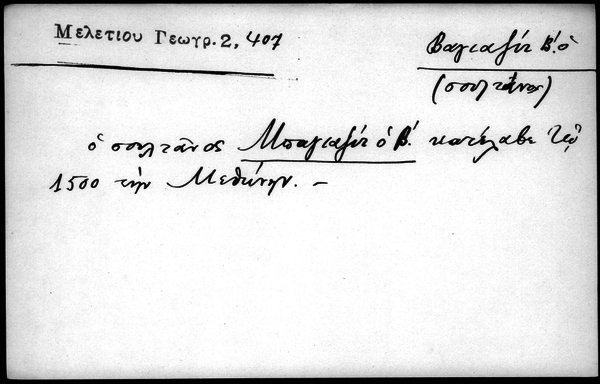 Μελετίου Γεωγρ. 2, 407
Βαγιαζίτ Β'. ὁ
(σουλτάνος)
ὁ σουλτᾶνος Μπαγιαζίτ ὁ Β'. κατέλαβε τῷ
1500 τὴν Μεθώνην. –